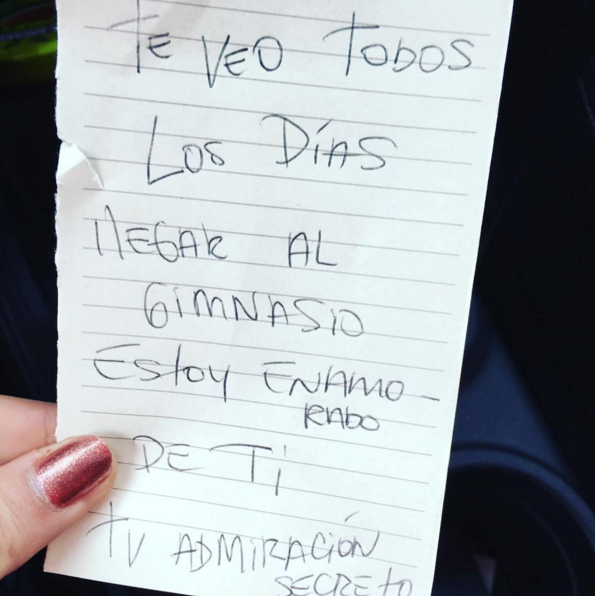 TE VEO TODOS
LOS DÍAS
llEGAR AL
GIMNASIO
Estoy ENAMO-
RADO
DE Ti
TU ADMIRACIÓN
SECRETO